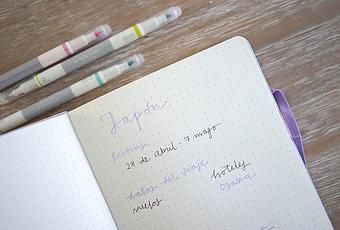 Japón
fechas
28 de abril - 7 mayo
datos del viaje
vuelos
hoteles
Osaka